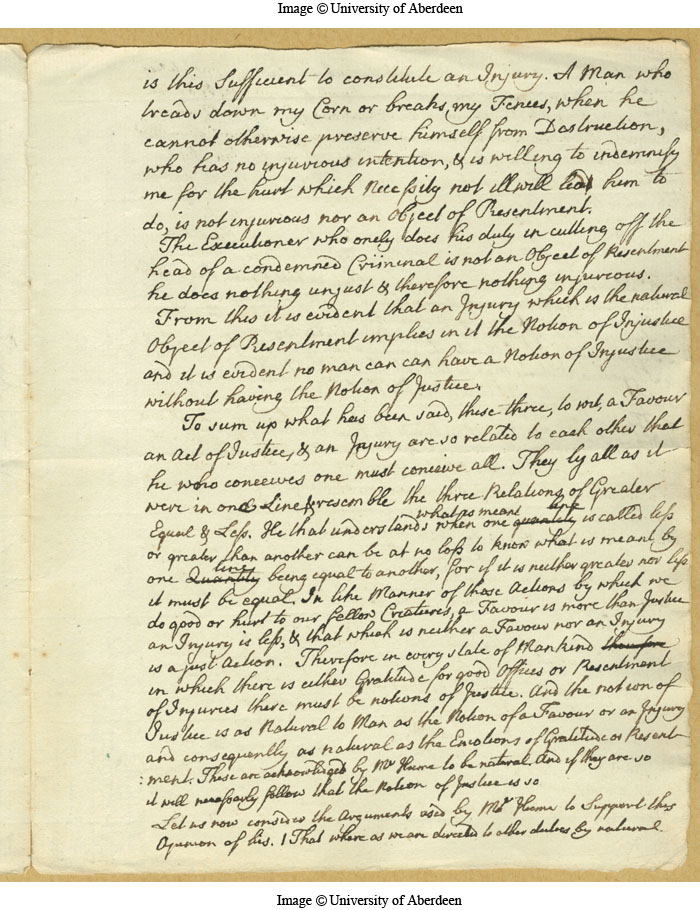 Image © University of Aberdeen
is this sufficient to constitute an Injury. A Man who
treads down my Corn or breaks my Fences, when he
cannot otherwise preserve himself from Dastruction,
who has no injurious intention, & is willing to indemnify
me for the hurt which Necessity not illwill lead him to
do, is not injurious nor an Object of Resentment.
The Executioner who onely does his duty in cutting off the
head of a condemned Criminal is not an Object of Resentment
he does nothing unjust & therefore nothing injurious.
From this it is evident that an Injury which is the natural
Object of Resentment implies in it the Notion of Injustice
and it is evident no man can can have a Notion of Injustice
without having the Notion of Justice.
To sum up what has been said, these three, to wit, a Favour
an Act of Justice, & an Injury are so related to each other that
he who conceives one must conceive all. They ly all as it
were in one Line & resemble the three Relations of Greater
Equal & Less. He that understands what is meant when one quantity line is called less
or greater than another can be at no loss to know what is meant by
one Quantity line being equal to another, for if it is neither greater nor less
it must be equal. In like Manner of those Actions by which we
do good or hurt to our fellow Creatures, a Favour is more than Justice
an Injury is less, & that which is neither a Favour nor an Injury
is a just Action. Therefore in every state of Mankind therefore
in which there is either Gratitude for good Offices or Resentment
of Injuries there must be notions of Justice. And the notion of
Justice is as Natural to Man as the Notion of a Favour or an Injury
and consequently as natural as the Emotions of Gratitude or Resent
:ment. These are acknowledged by Mr Hume to be natural. And if they are so
it will necessarly follow that the Notion of Justice is so
Let us now consider the Arguments used by Mr Hume to Support this
Opinion of his. 1 That where as we are directed to other duties by natural
Image © University of Aberdeen